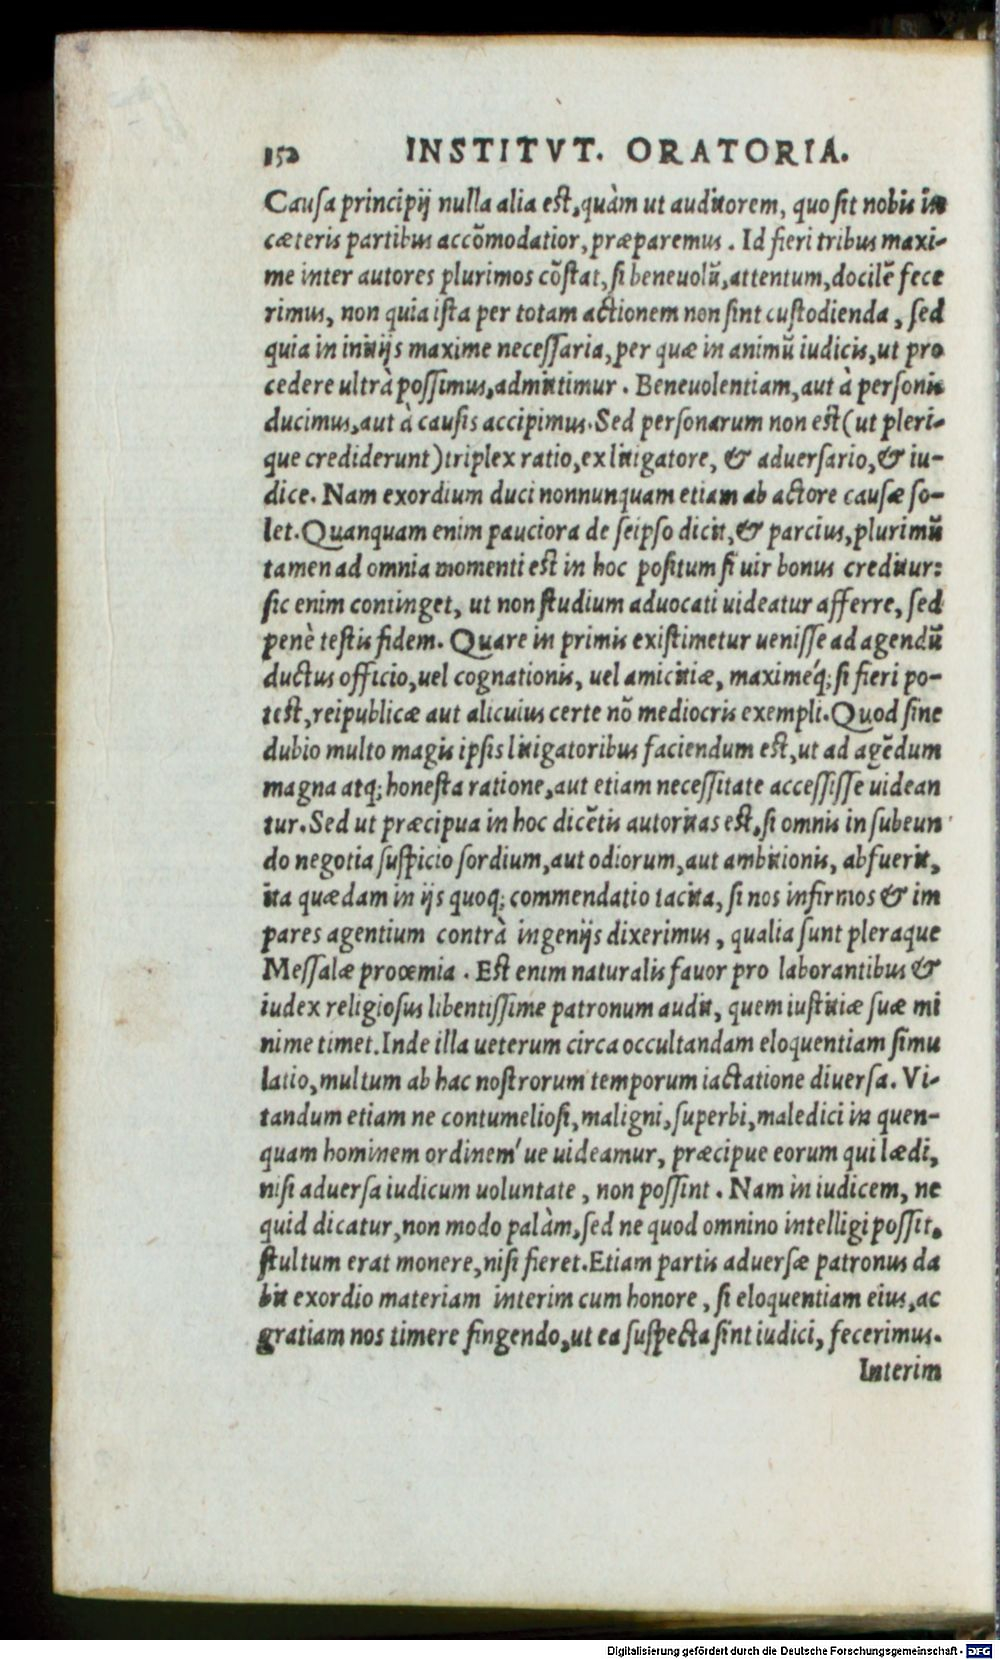 152 INSTITVT. ORATORIA.
Causa principij nulla alia est, quàm ut auditorem, quo sit nobis in
cæteris partibus accõmodatior, præparemus. Id fieri tribus maxi-
me inter autores plurimos cõstat, si beneuolũ, attentum, docilẽ fece
rimus, non quia ista per totam actionem non sint custodienda, sed
quia in initijs maxime necessaria, per quæ in animũ iudicis, ut pro
cedere ultrà possimus, admittimur. Beneuolentiam, aut à personis
ducimus, aut à causis accipimus. Sed personarum non est (ut pleri-
que crediderunt) triplex ratio, ex litigatore, & aduersario, & iu-
dice. Nam exordium duci nonnunquam etiam ab actore causæ so-
let. Quanquam enim pauciora de seipso dicit, & parcius, plurimũ
tamen ad omnia momenti est in hoc positum si uir bonus creditur:
sic enim continget, ut non studium aduocati uideatur afferre, sed
penè testis fidem. Quare in primis existimetur uenisse ad agendũ
ductus officio, uel cognationis, uel amicitiæ, maximéq; si fieri po-
test, reipublicæ aut alicuius certe nõ mediocris exempli. Quod sine
dubio multo magis ipsis litigatoribus faciendum est, ut ad agẽdum
magna atq; honesta ratione, aut etiam necessitate accessisse uidean
tur. Sed ut præcipua in hoc dicẽtis autoritas est, si omnis in subeun
do negotia suspicio sordium, aut odiorum, aut ambitionis, abfuerit,
ita quædam in ijs quoq; commendatio tacita, si nos infirmos & im
pares agentium contrà ingenijs dixerimus, qualia sunt pleraque
Messalæ prooemia. Est enim naturalis fauor pro laborantibus &
iudex religiosus libentissime patronum audit, quem iustitiæ suæ mi
nime timet. Inde illa ueterum circa occultandam eloquentiam simu
latio, multum ab hac nostrorum temporum iactatione diuersa. Vi-
tandum etiam ne contumeliosi, maligni, superbi, maledici in quen-
quam hominem ordinem' ue uideamur, præcipue eorum qui lædi,
nisi aduersa iudicum uoluntate, non possint. Nam in iudicem, ne
quid dicatur, non modo palàm, sed ne quod omnino intelligi possit,
stultum erat monere, nisi fieret. Etiam partis aduersæ patronus da
bit exordio materiam interim cum honore, si eloquentiam eius, ac
gratiam nos timere fingendo, ut ea suspecta sint iudici, fecerimus.
Interim
Digitalisierung gefördert durch die Deutsche Forschungsgemeinschaft - DFG